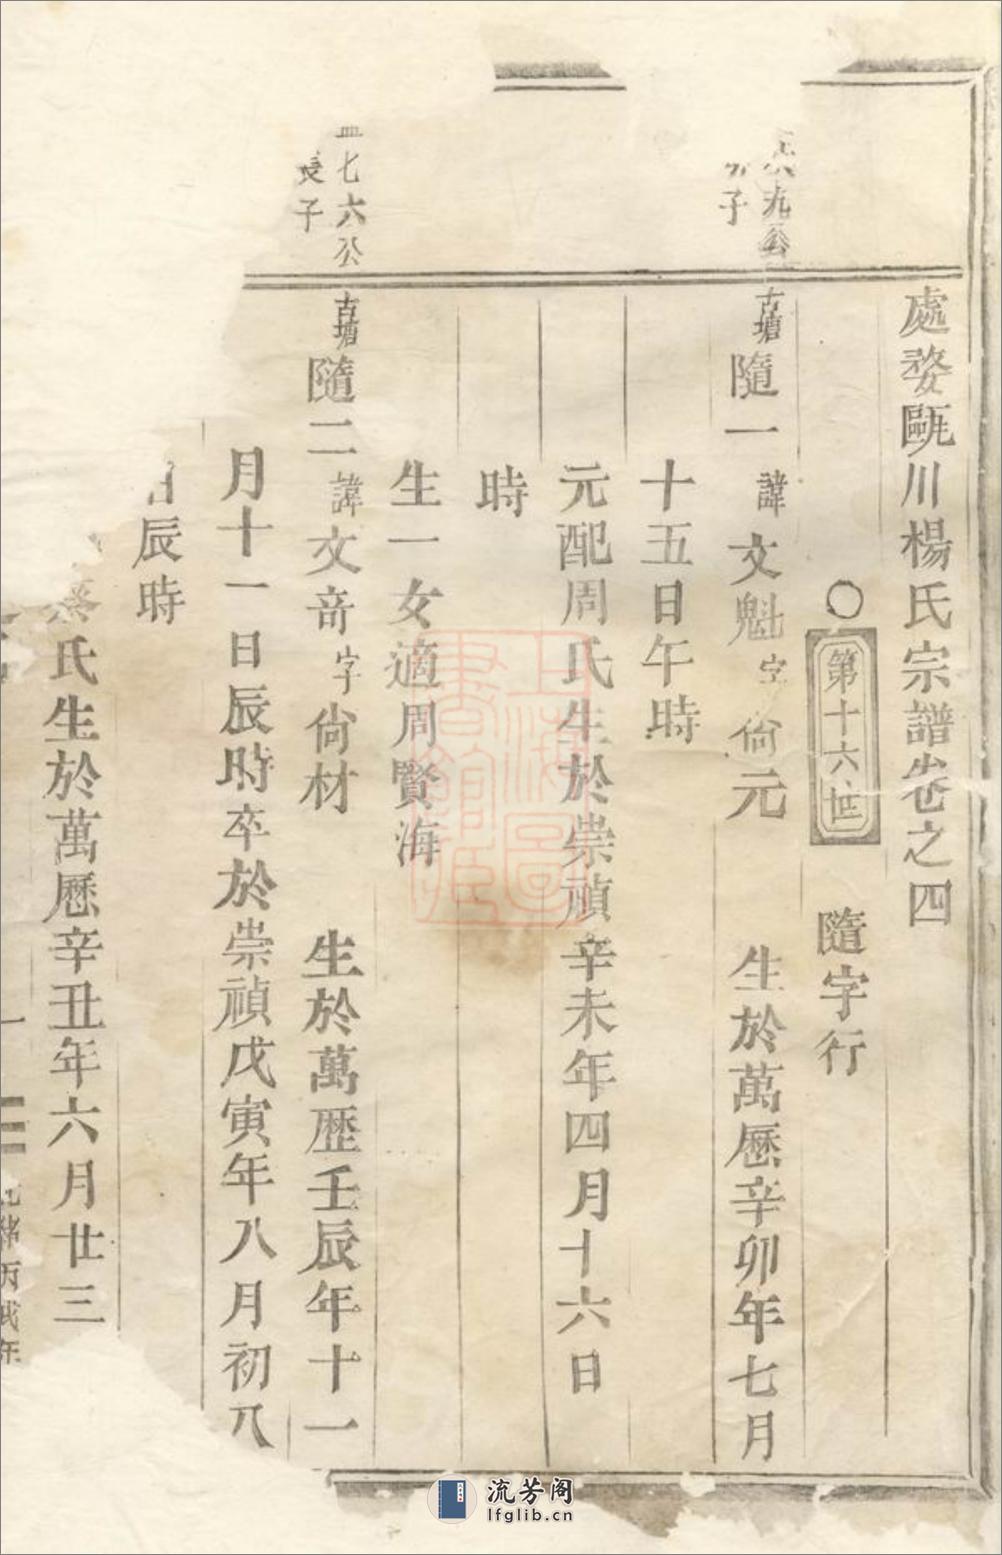 處婺甌川楊氏宗譜卷之四
第十六世 隨字行
九公
子
古塘 隨一 諱文魁字尙元 生於萬曆辛卯年七月
十五日午時
元配周氏生於崇禎辛未年四月十六日
時
生一女適周賢海
七六公
長子
古塘 隨二 諱文奇字尙材 生於萬歴壬辰年十一
月十一日辰時卒於崇禎戊寅年八月初八
日辰時
氏生於萬曆辛丑年六月廿三
一
丙戌年
上海圖書館藏
流芳阁
lfglib.cn